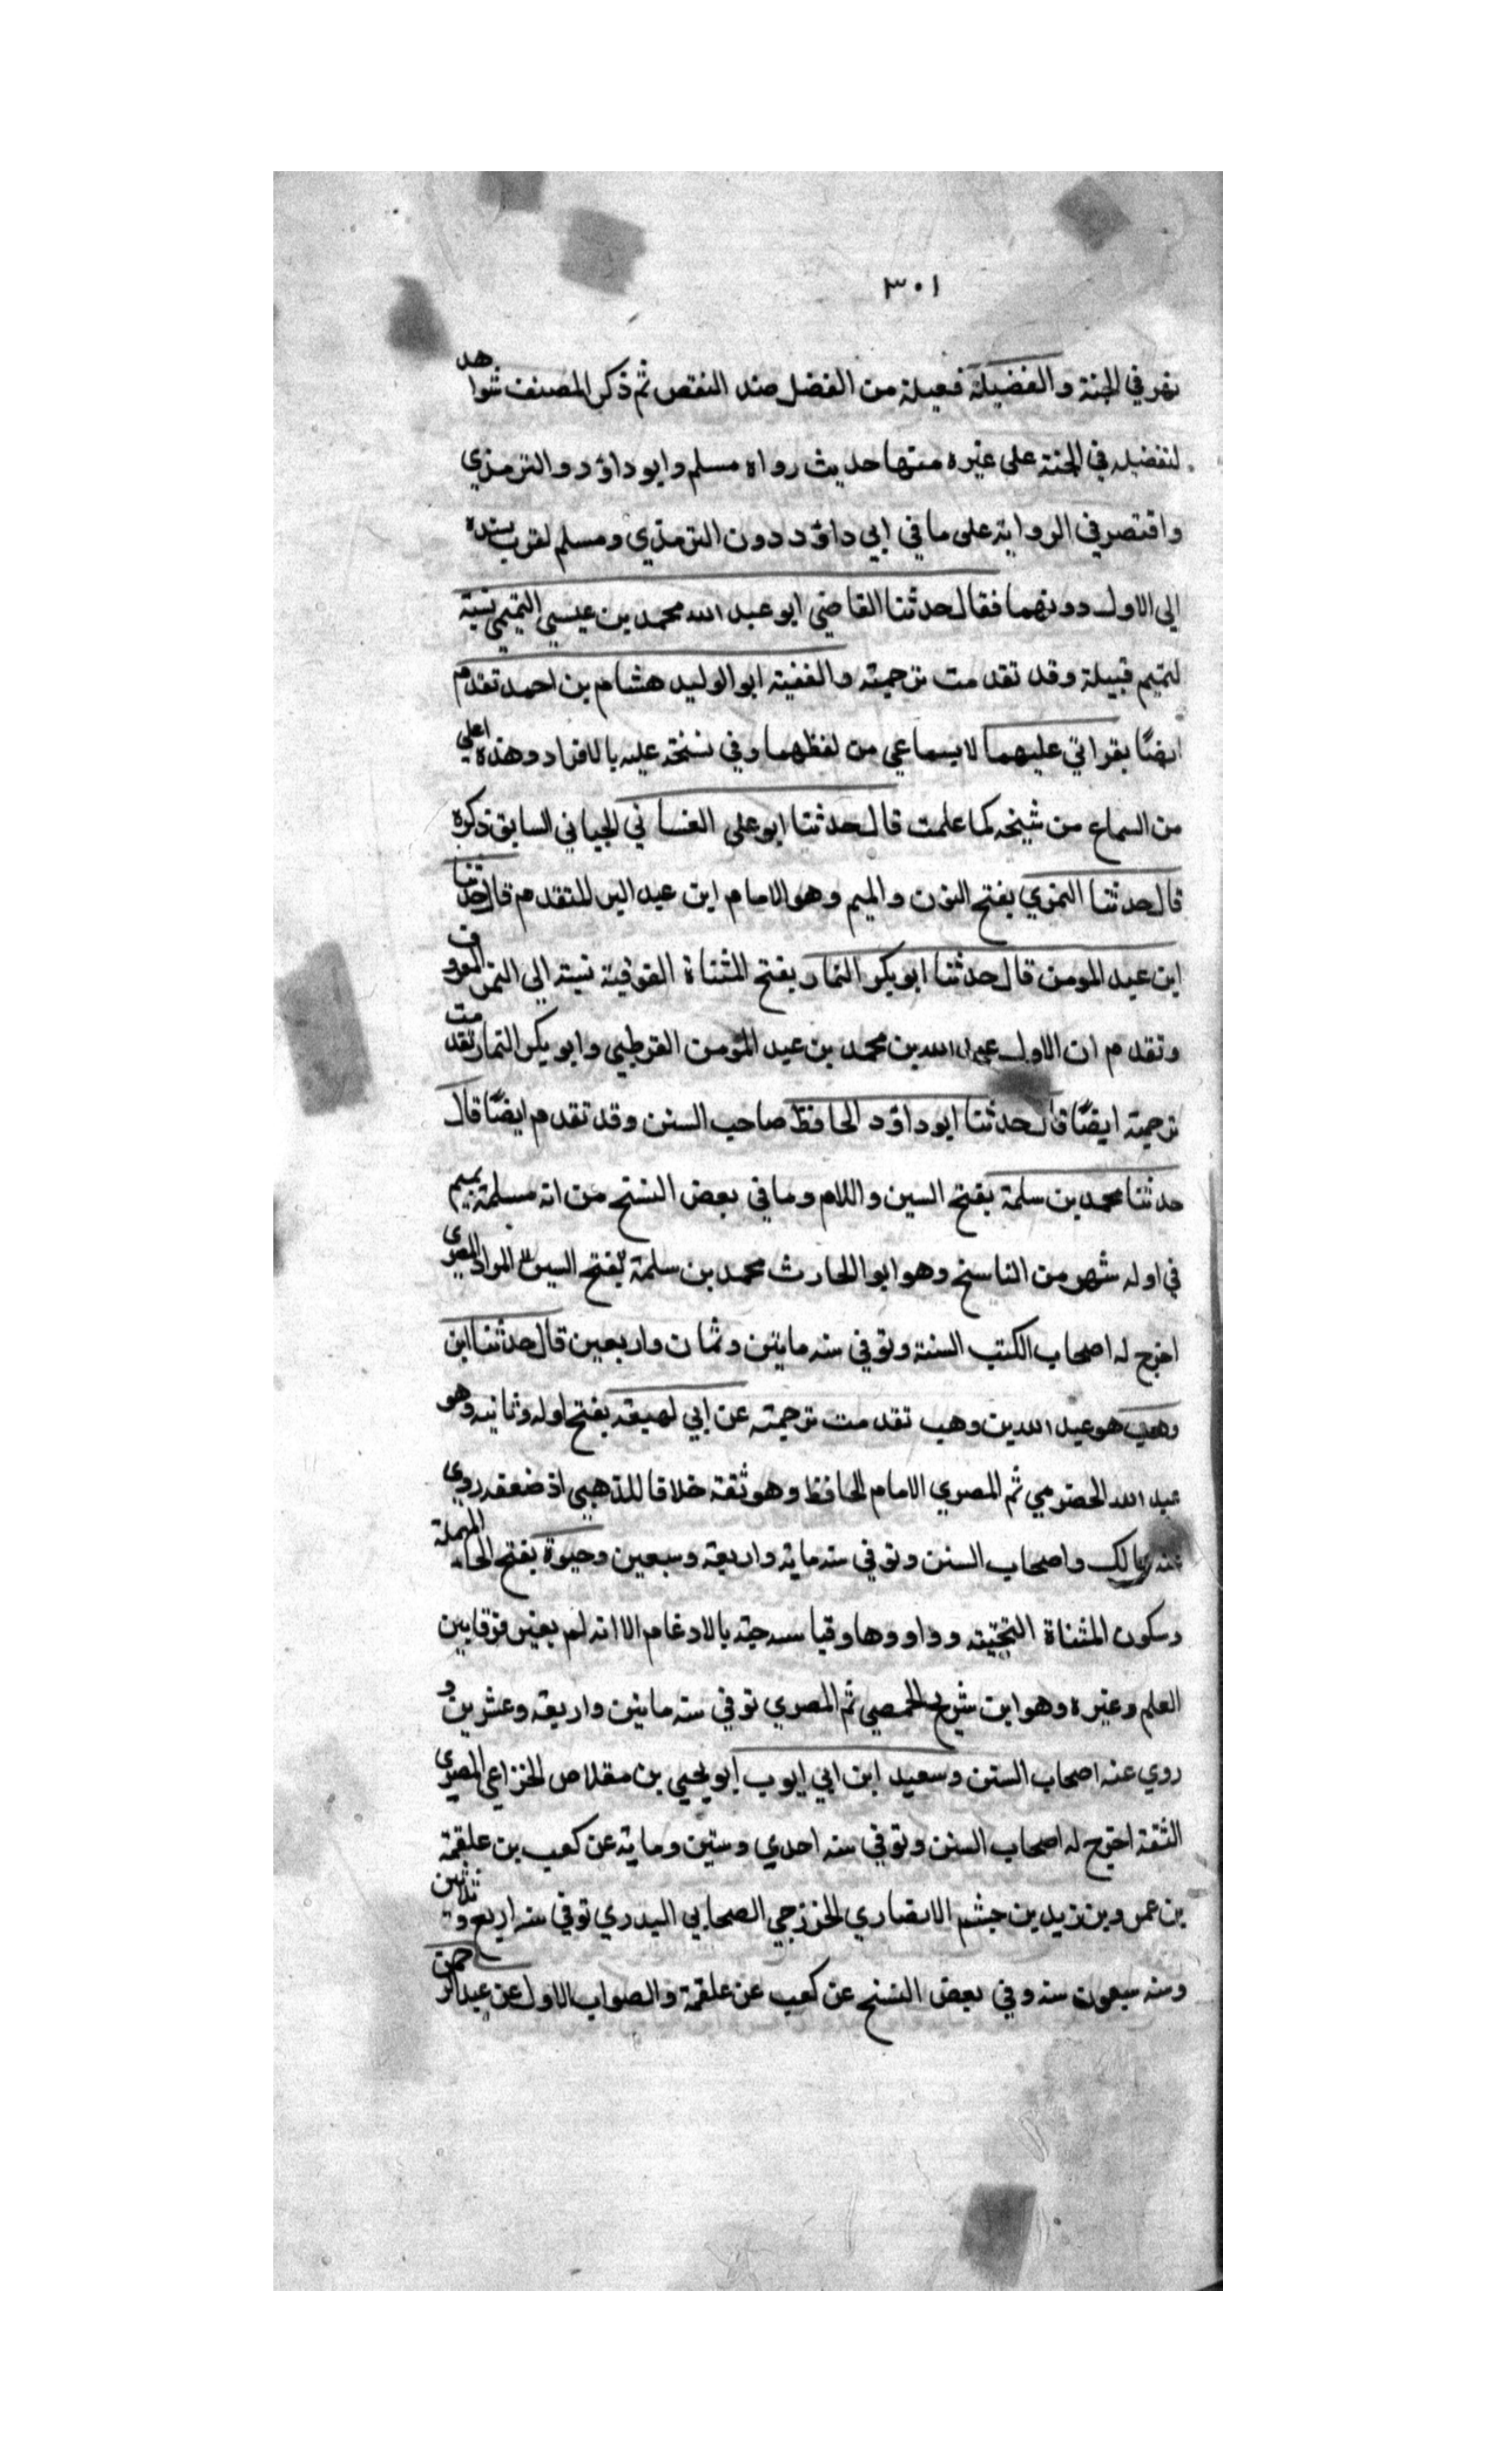 ٣٠١
نهر في الجنة والفضيلة فعيلة من الفضل ضد النقص ثم ذكر المصنف شواهد
لتفضيله في الجنة على غيره منها حديث رواه مسلم وابو داؤد والترمذي
واقتصر في الرواية على ما في ابي داؤد دون الترمذي ومسلم لقرب سنده
الى الاول دونهما فقال حدثنا القاضي ابو عبد الله محمد بن عيسي التميمي نسبة
لتميم قبيلة وقد تقدمت ترجمته والفقيه ابو الوليد هشام بن احمد تقدم
ايضًا بقراتي عليهما لا بسماعي من لفظهما وفي نسخة عليه بالافراد وهذه اعلي
من السماع من شيخه كما علمت قال حدثنا ابو على الغساني الجياني السابق ذكره
قال حدثنا النمري بفتح النون والميم وهو الامام ابن عبد البر المتقدم قال حدثنا
ابن عبد المومن قال حدثنا ابو بكر التمار بفتح المثناة الفوقية نسبة الي التمر المعروف
وتقدم ان الاول عبد الله بن محمد بن عبد المؤمن القرطبي وابو بكر التمار تقدمت
ترجمته ايضًا قال حدثنا ابو داؤد الحافظ صاحب السنن وقد تقدم ايضًا قال
حدثنا محمد بن سلمة بفتح السين واللام وما في بعض النسخ من انه مسلمة بميم
في اوله سهو من الناسخ وهو ابو الحارث محمد بن سلمة بفتح السين المرادي المصري
اخرج له اصحاب الكتب الستة وتوفي سنه مايتين وثمان واربعين قال حدثنا ابن
وهب هو عبد الله بن وهب تقدمت ترجمته عن ابي لهيعة بفتح اوله وثانيه وهو
عبد الله الحضرمي ثم المصري الامام الحافظ وهو ثقة خلافا للذهبي اذ ضعفه روي
عنه مالك واصحاب السنن وتوفي سنه ماية واربعة وسبعين وحيوة بفتح الحاء المهملة
وسكون المثناة التحتية وواو وها وقياسه حية بالادغام الا انه لم يغير فرقا بين
العلم وغيره وهو ابن شريح الحمصي ثم المصري توفي سنه مايتين واربعة وعشرين و
روي عنه اصحاب السنن وسعيد ابن ابي ايوب ابو يحيي بن مقلاص الخزاعي المصري
الثقة احتج له اصحاب السنن وتوفي سنه احدي وستين وماية عن كعب بن علقمة
بن عمرو بن زيد بن جشم الانصاري الخزرجي الصحابي البدري توفي سنه اربع وثلاثين
وسنه سبعون سنه وفي بعض النسخ عن كعب عن علقمة والصواب الاول عن عبد الرحمن